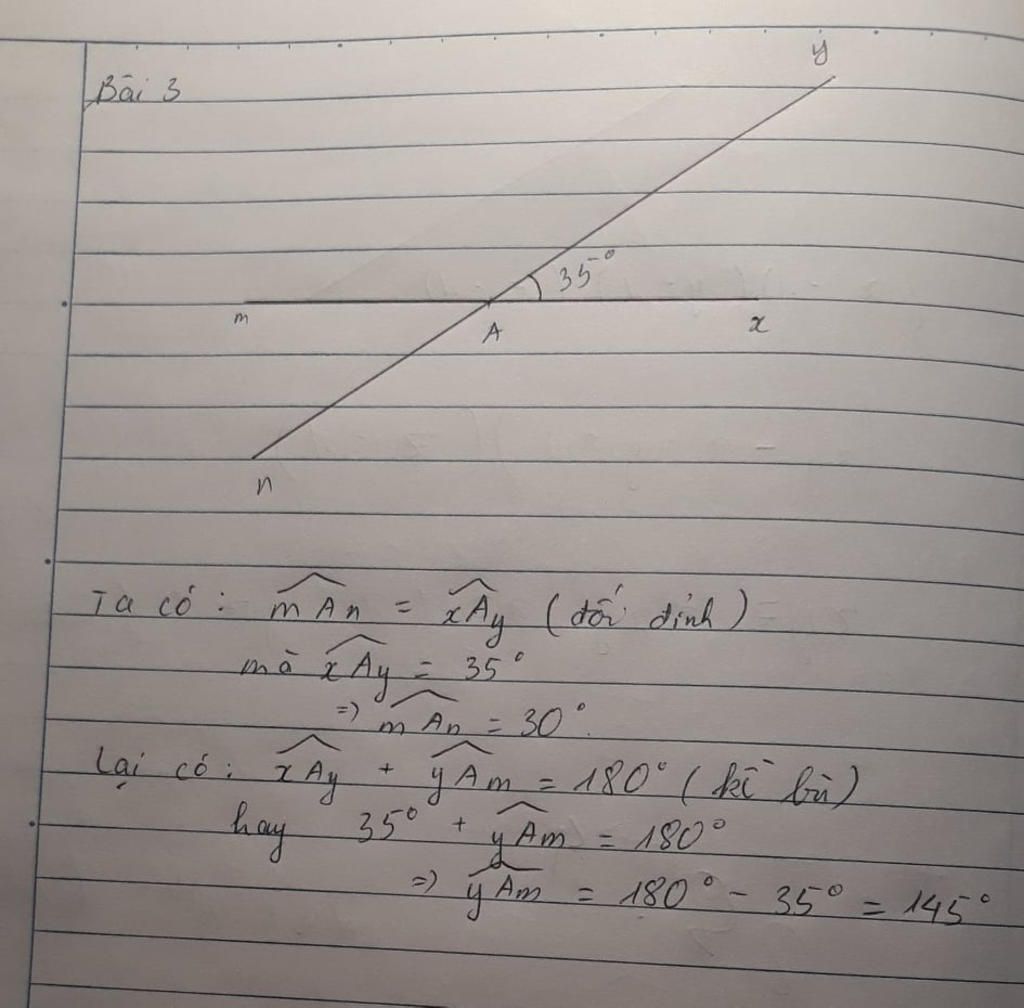 Bài 3
y
35°
m
A
x
n
Ta có : mAn = xAy (đối đỉnh)
mà xAy = 35°
=> mAn = 30°.
Lại có : xAy + yAm = 180° (kề bù)
hay 35° + yAm = 180°
=> yAm = 180° - 35° = 145°